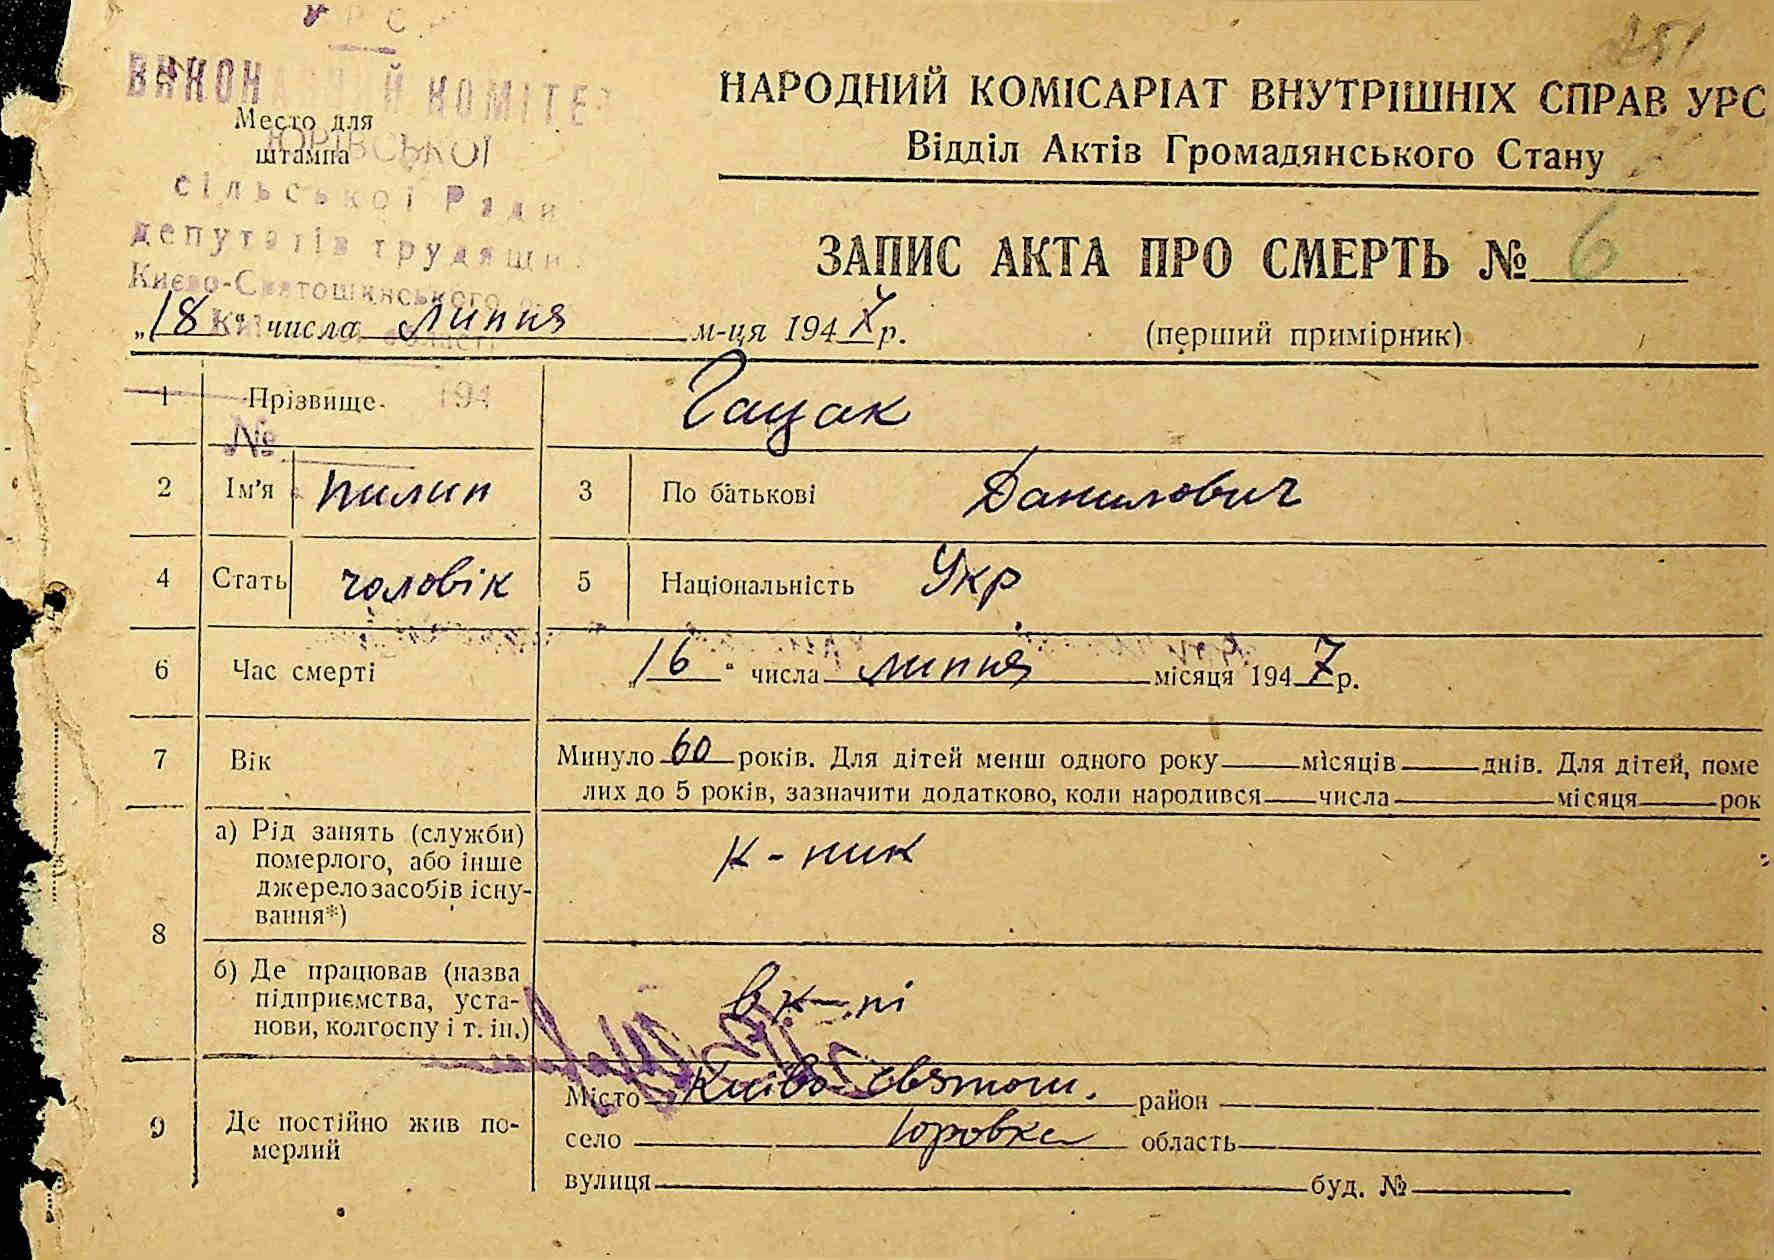 251
У Р С
ВИКОНАВЧИЙ КОМІТЕ
Место для
штампа
ЮРІВСЬКОЇ
сільської Ради
депутатів трудящи
Києво-Святошинського
області
194
№
НАРОДНИЙ КОМІСАРІАТ ВНУТРІШНІХ СПРАВ УРС
Відділ Актів Громадянського Стану
ЗАПИС АКТА ПРО СМЕРТЬ № 6
„18“ числа липня м-ця 1947 р.
(перший примірник)
1 Прізвище Гацак
2 Ім'я Пилип 3 По батькові Данилович
4 Стать чоловік 5 Національність Укр
6 Час смерті „16“ числа липня місяця 1947 р.
7 Вік Минуло 60 років. Для дітей менш одного року місяців днів. Для дітей, поме
лих до 5 років, зазначити додатково, коли народився числа місяця рок
8 а) Рід занять (служби)
померлого, або інше
джерело засобів існу-
вання*)
к-ник
б) Де працював (назва
підприємства, уста-
нови, колгоспу і т. ін.)
в к-пі
9 Де постійно жив по-
мерлий
Місто Києво Святош. район
село Юровка область
вулиця буд. №